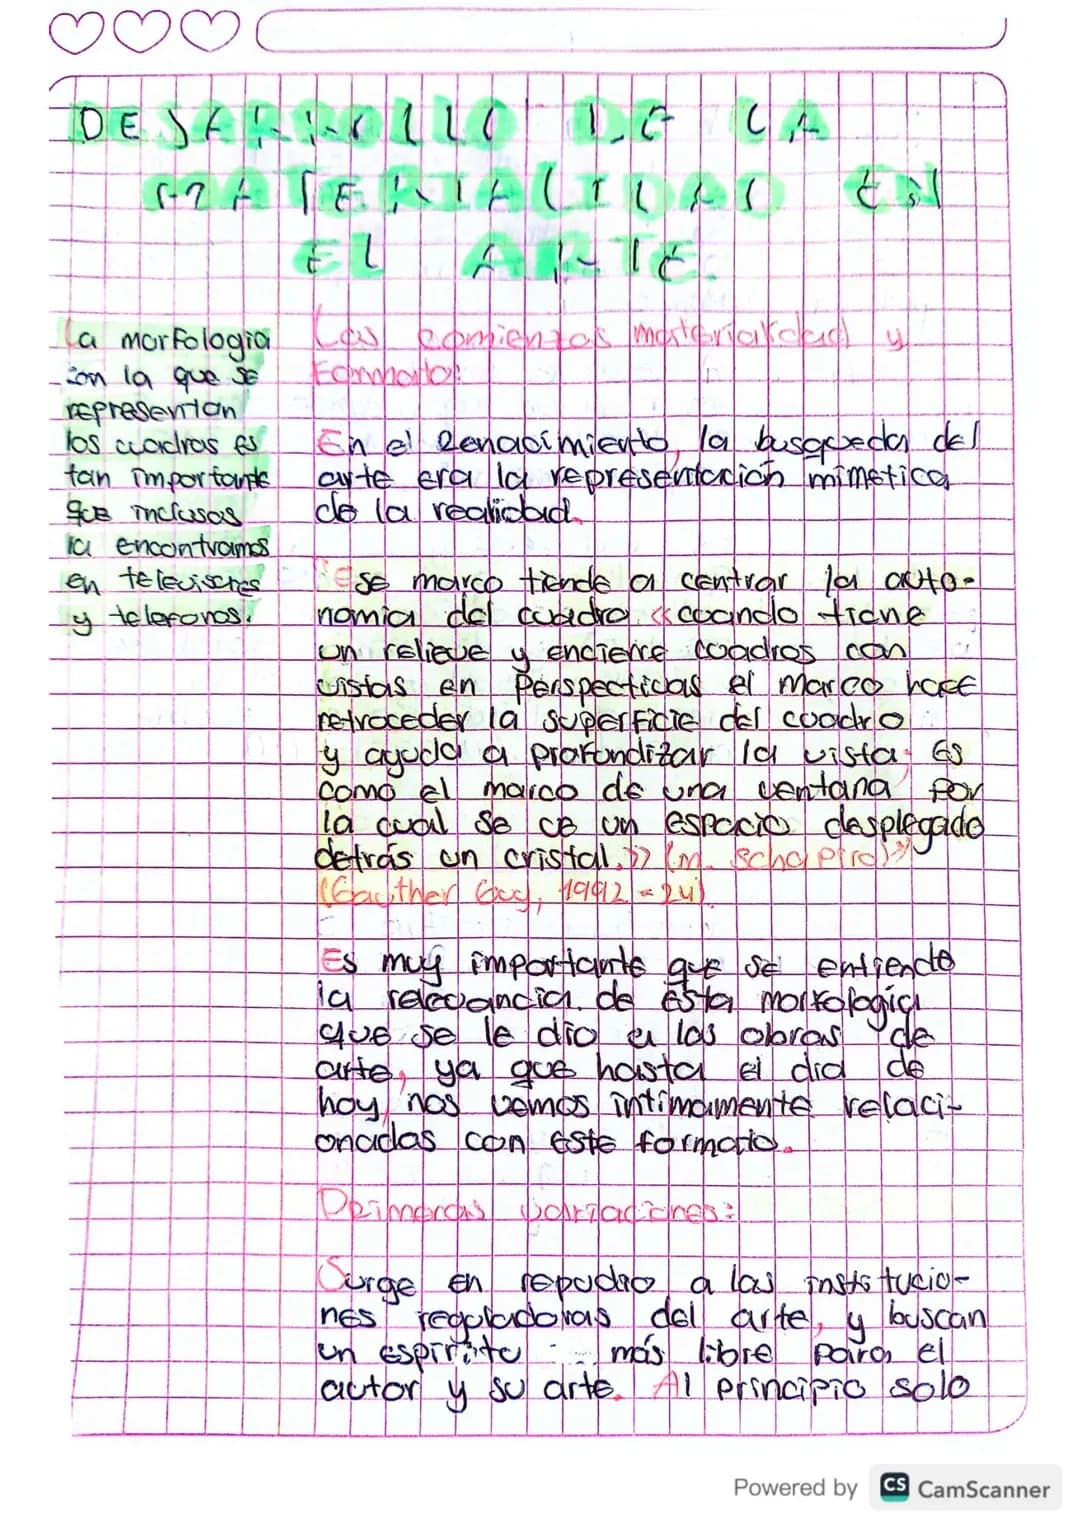 DESARROLLO DE LA
MATERIALIDAD EN
EL ARTE.
La morfologia
con la que se
representan
los cuadros es
tan importante
que inclusos
la encontramos
en televisores
y telefonos.
Los comienzos materialidad y
Formato:
En el Renacimiento, la busqueda del
arte era la representación mimetica
de la realidad.
"Ese marco tiende a centrar la auto-
nomia del cuadro «cuando tiene
un relieve y encierre cuadros con
vistas en Perspectivas el marco hace
retroceder la superficie del cuadro
y ayuda a profundizar la vista. Es
como el marco de una ventana por
la cual se ve un espacio desplegado
detrás un cristal.» (M. Schapiro)"
(Gauther Guy, 1992 = 24)
Es muy importante que se entienda
la relevancia de ésta morfologia
que se le dio a las obras de
arte, ya que hasta el dia de
hoy, nos vemos intimamente relaci-
onadas con este formato.
Primeras variaciones:
Surge en repudio a las institucio-
nes reguladoras del arte, y buscan
un espiritu más libre para el
autor y su arte. Al principio solo
Powered by CS CamScanner